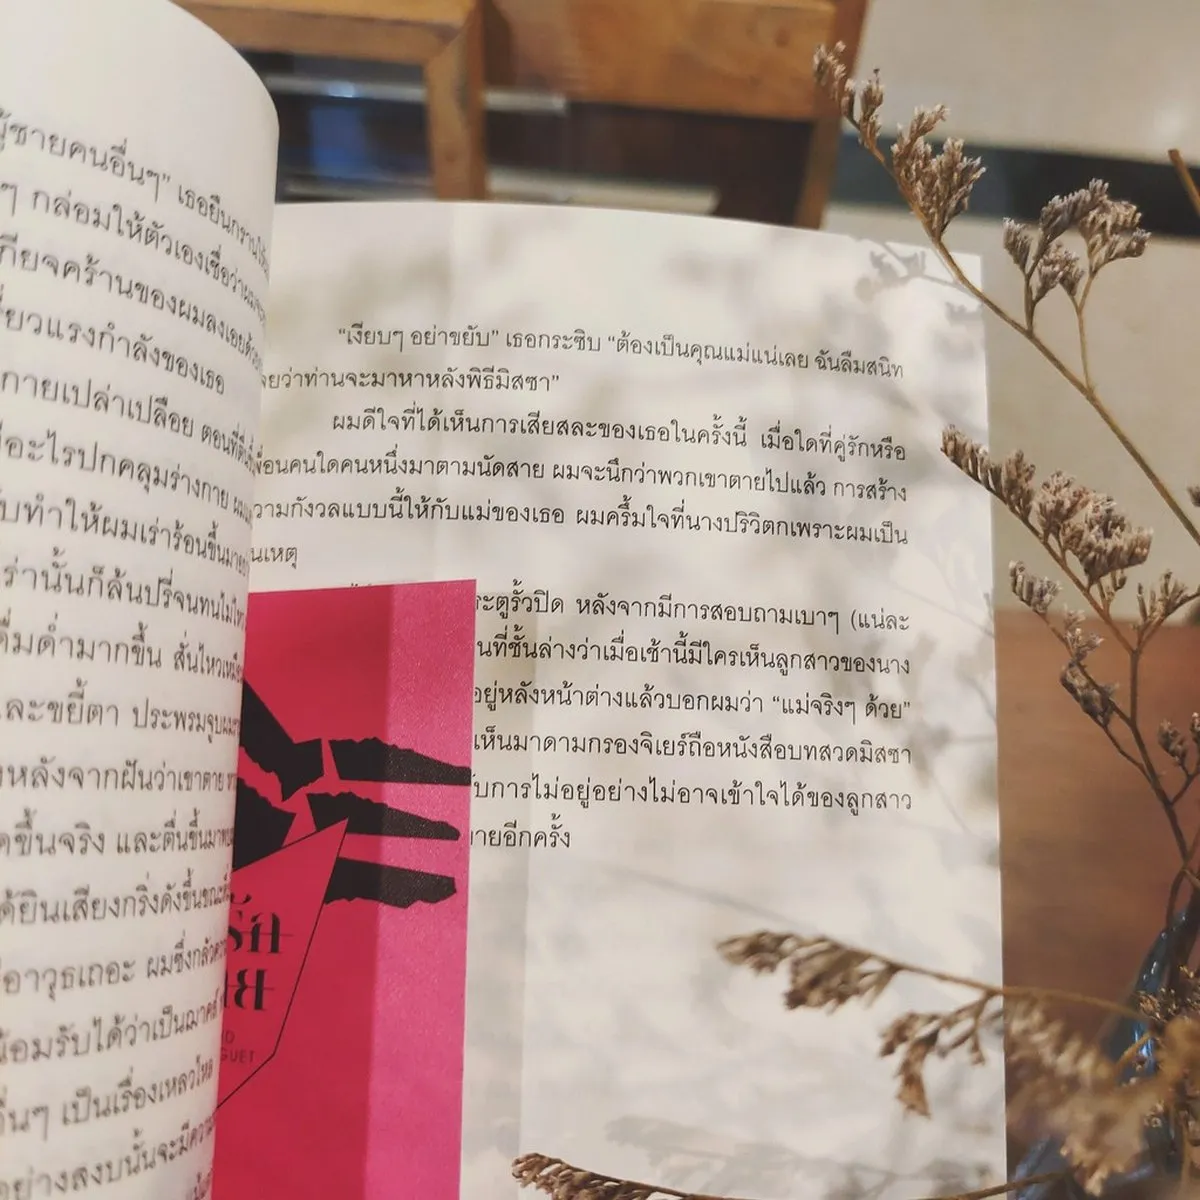 ผู้ชายคนอื่นๆ” เธอยืนกรานให้
ๆ กล่อมให้ตัวเองเชื่อว่าผม
เกียจคร้านของผมลงเอยด้วย
เรี่ยวแรงกำลังของเธอ
กายเปล่าเปลือย ตอนที่
อะไรปกคลุมร่างกาย
ทำให้ผมเร่าร้อนขึ้นมา
เร่านั้นก็ล้นปรี่จนทนไม่ไหว
ดื่มด่ำมากขึ้น สั่นไหว
และขยี้ตา ประพรมจูบ
หลังจากฝันว่าเขาตาย
ขึ้นจริง และตื่นขึ้นมา
ได้ยินเสียงกริ่งดังขึ้นขณะ
อาวุธเถอะ ผมซึ่งกลัว
น้อมรับได้ว่าเป็น
อื่นๆ เป็นเรื่องเหลวไหล
อย่างสงบนั้นจะมี
“เงียบๆ อย่าขยับ” เธอกระซิบ “ต้องเป็นคุณแม่แน่เลย ฉันลืมสนิท
เลยว่าท่านจะมาหาหลังพิธีมิสซา”
ผมดีใจที่ได้เห็นการเสียสละของเธอในครั้งนี้ เมื่อใดที่คู่รักหรือ
เพื่อนคนใดคนหนึ่งมาตามนัดสาย ผมจะนึกว่าพวกเขาตายไปแล้ว การสร้าง
ความกังวลแบบนี้ให้กับแม่ของเธอ ผมครึ้มใจที่นางปริวิตกเพราะผมเป็น
ต้นเหตุ
ประตูรั้วปิด หลังจากมีการสอบถามเบาๆ (แน่ละ
ที่ชั้นล่างว่าเมื่อเช้านี้มีใครเห็นลูกสาวของนาง
อยู่หลังหน้าต่างแล้วบอกผมว่า “แม่จริงๆ ด้วย”
เห็นมาดามกรองจิเยร์ถือหนังสือบทสวดมิสซา
กับการไม่อยู่อย่างไม่อาจเข้าใจได้ของลูกสาว
กายอีกครั้ง
รัก
GUET